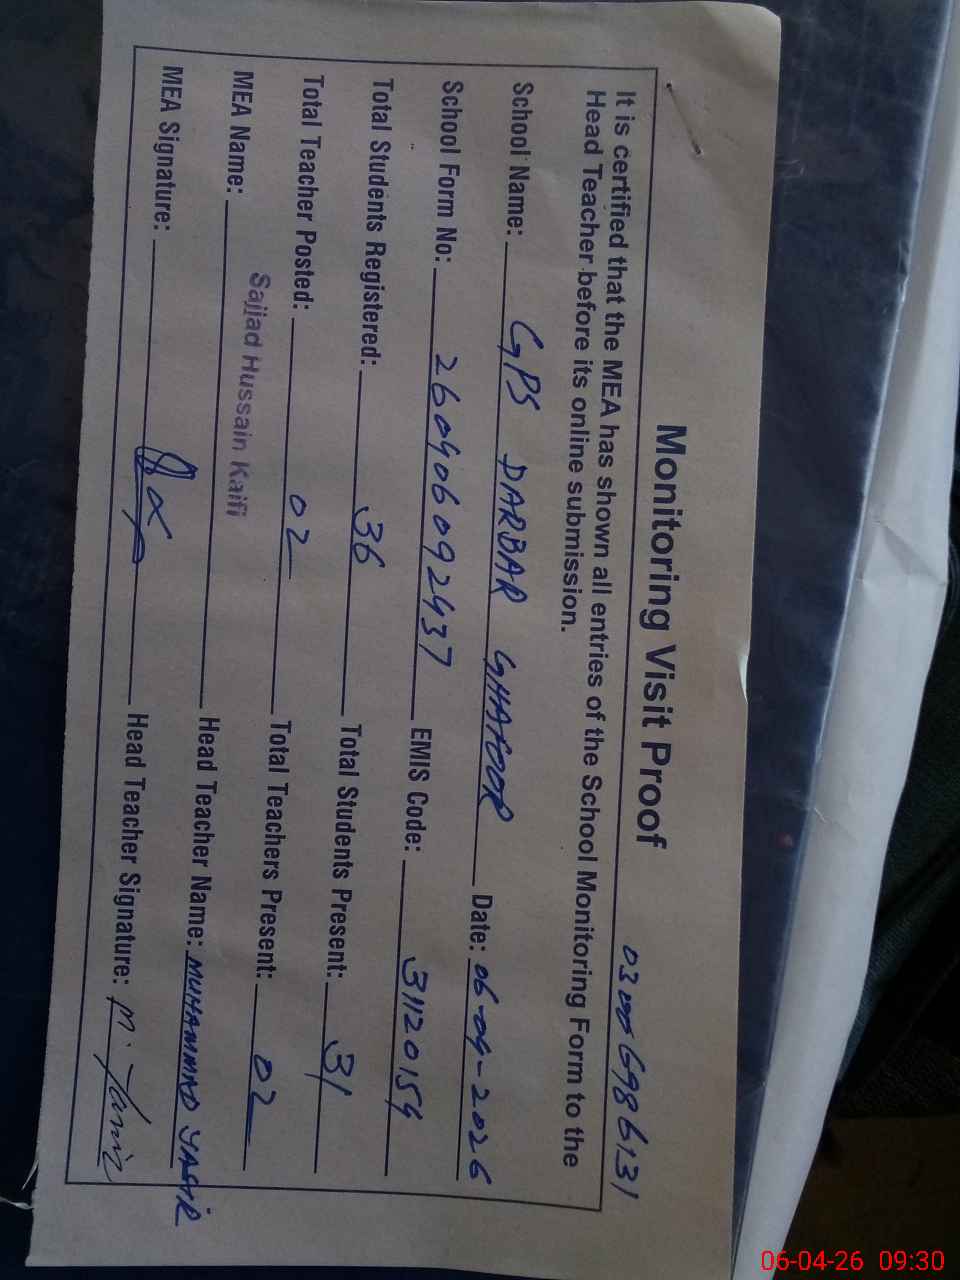 Monitoring Visit Proof
It is certified that the MEA has shown all entries of the School Monitoring Form to the
Head Teacher before its online submission.
School Name: GPS DARBAR GHAFOOR Date: 06-04-2026
School Form No: 260406092437 EMIS Code: 31120154
Total Students Registered: 36 Total Students Present: 31
Total Teacher Posted: 02 Total Teachers Present: 02
MEA Name: Sajjad Hussain Kaifi Head Teacher Name: MUHAMMAD YASIR
MEA Signature: Head Teacher Signature: M. Yasir
06-04-26 09:30